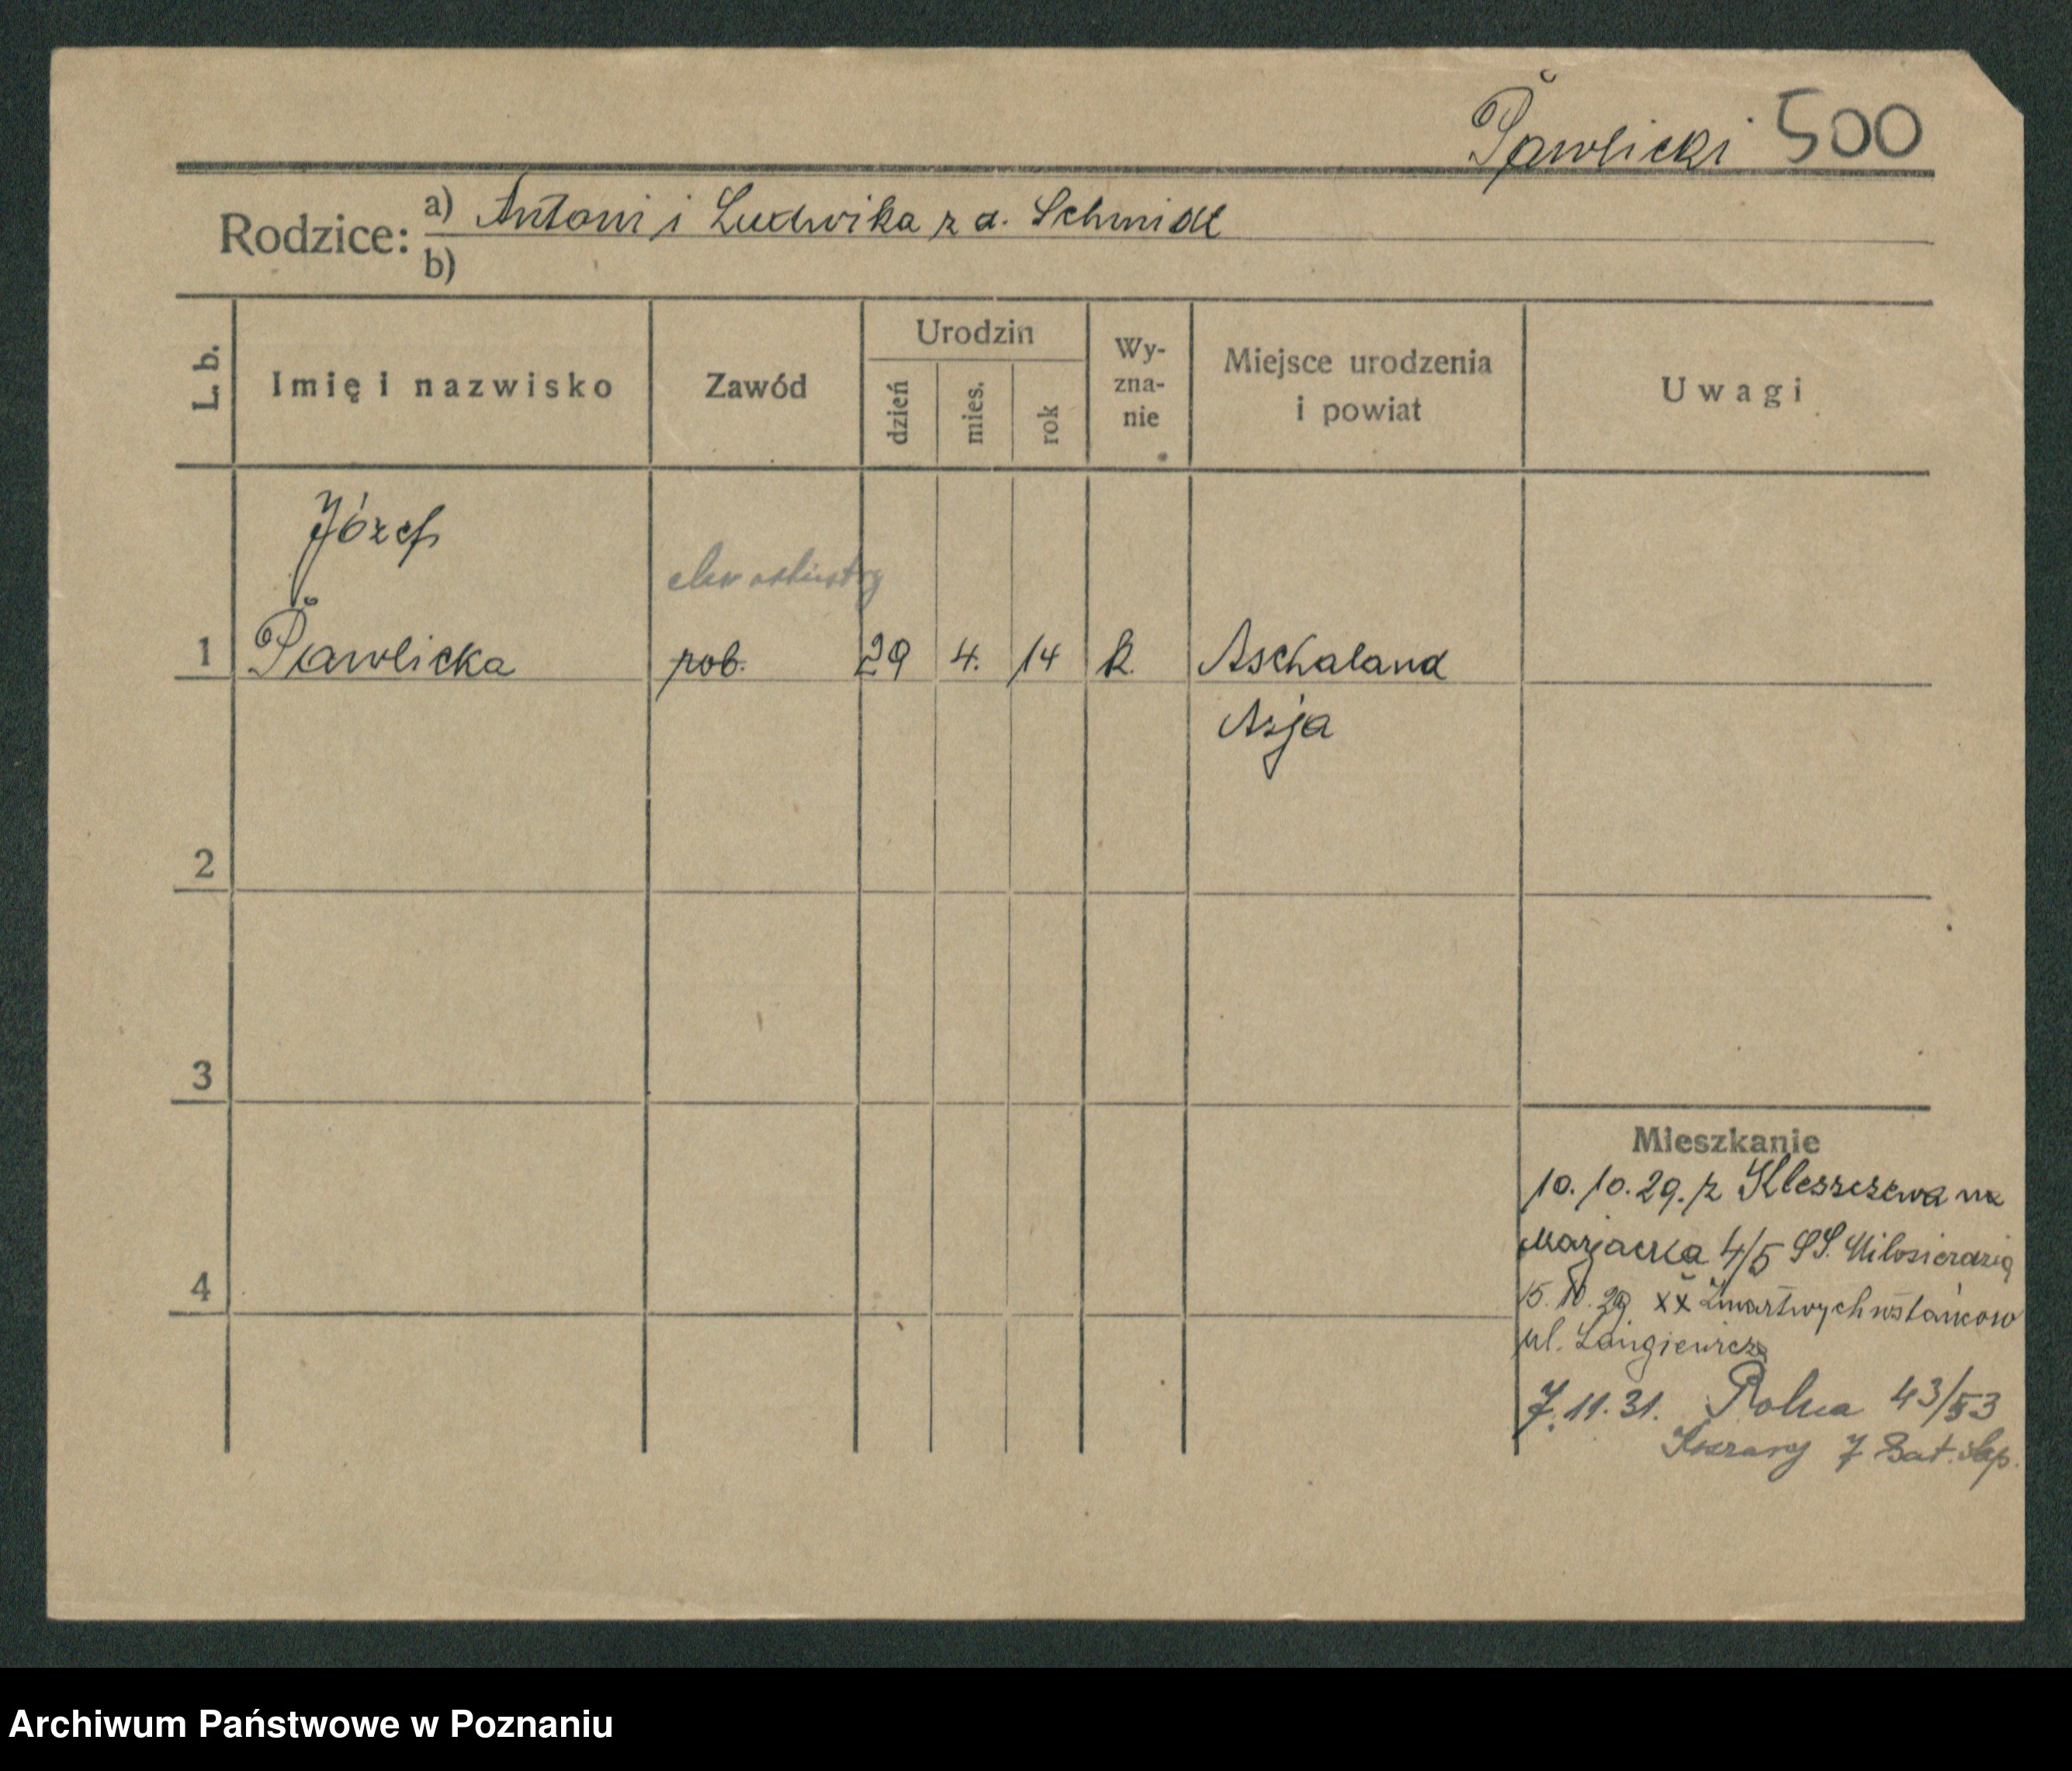 Pawlicki 500
Rodzice: a) Antoni i Ludwika z d. Schmidt
b)
L. b.
Imię i nazwisko
Zawód
Urodzin
dzień
mies.
rok
Wy-
zna-
nie
Miejsce urodzenia
i powiat
Uwagi
Józef
1 Pawlicka rob. 29 4. 14 k. Aschaland
Azja
2
3
4
Mieszkanie
10. 10. 29. z Kleszczewa na
Marjacka 4/5 SS. Miłosierdzia
15. 10. 29 XX Zmartwychwstańców
ul. Langiewicza
7. 11. 31. Rolna 43/53
Koszary 7 Bat. Sap.
Archiwum Państwowe w Poznaniu